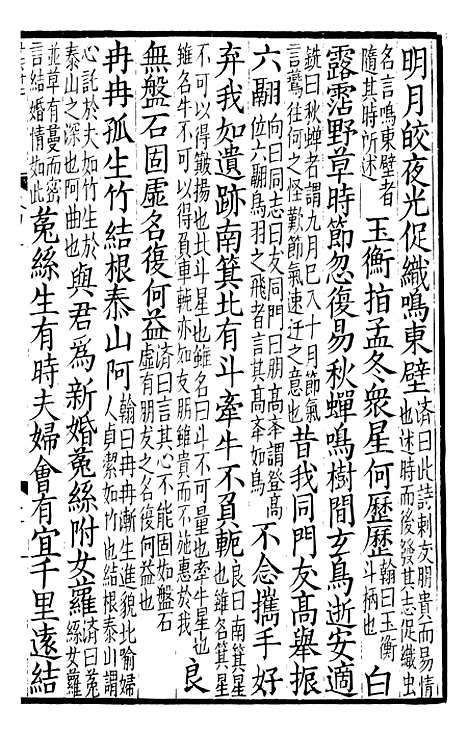 明月皎夜光促織鳴東壁濟曰此詩刺友朋貴而易情也述時而後發其志促織虫
名言鳴東壁者隨其時所述玉衡指孟冬衆星何歷歷翰曰玉衡斗柄也白
露霑野草時節忽復易秋蟬鳴樹間玄鳥逝安適
銑曰秋蟬者謂九月巳入十月節氣言驚往何之怪歎節氣速迁之意也昔我同門友高舉振
六翮向曰同志曰友同門曰朋高舉謂登高位六翮鳥羽之飛者言其高舉如鳥不念攜手好
弃我如遺跡南箕北有斗牽牛不負軛良曰南箕星也雖名箕星
不可以得簸揚也北斗星也雖名曰斗不可量也牽牛星也雖名牛不可以得負車軛亦如友朋雖貴而不施惠於我良
無盤石固虛名復何益濟曰言其心不能固如盤石虛有朋友之名復何益也
冉冉孤生竹結根泰山阿翰曰冉冉漸生進貌比喻婦人貞潔如竹也結根泰山謂
心託於夫如竹生於泰山之深也阿曲也與君爲新婚菟絲附女蘿濟曰菟絲女蘿
並草有蔓而密言結婚情如此菟絲生有時夫婦會有宜千里遠結